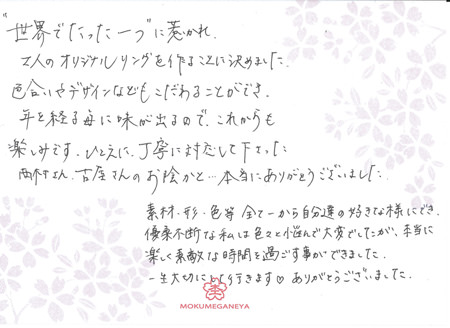 "世界でたった一つ"に惹かれ、
2人のオリジナルリングを作ることに決めました。
色合いやデザインなどもこだわることができ、
年を経る毎に味が出るので、これからも
楽しみです。ひとえに、丁寧に対応して下さった
西村さん、古屋さんのお陰かと…本当にありがとうございました。
素材・形・色等 全て一から自分達の好きな様にでき、
優柔不断な私は色々と悩んで大変でしたが、本当に
楽しく素敵な時間を過ごす事ができました。
一生大切にして行きます♡ ありがとうございました。
MOKUMEGANEYA